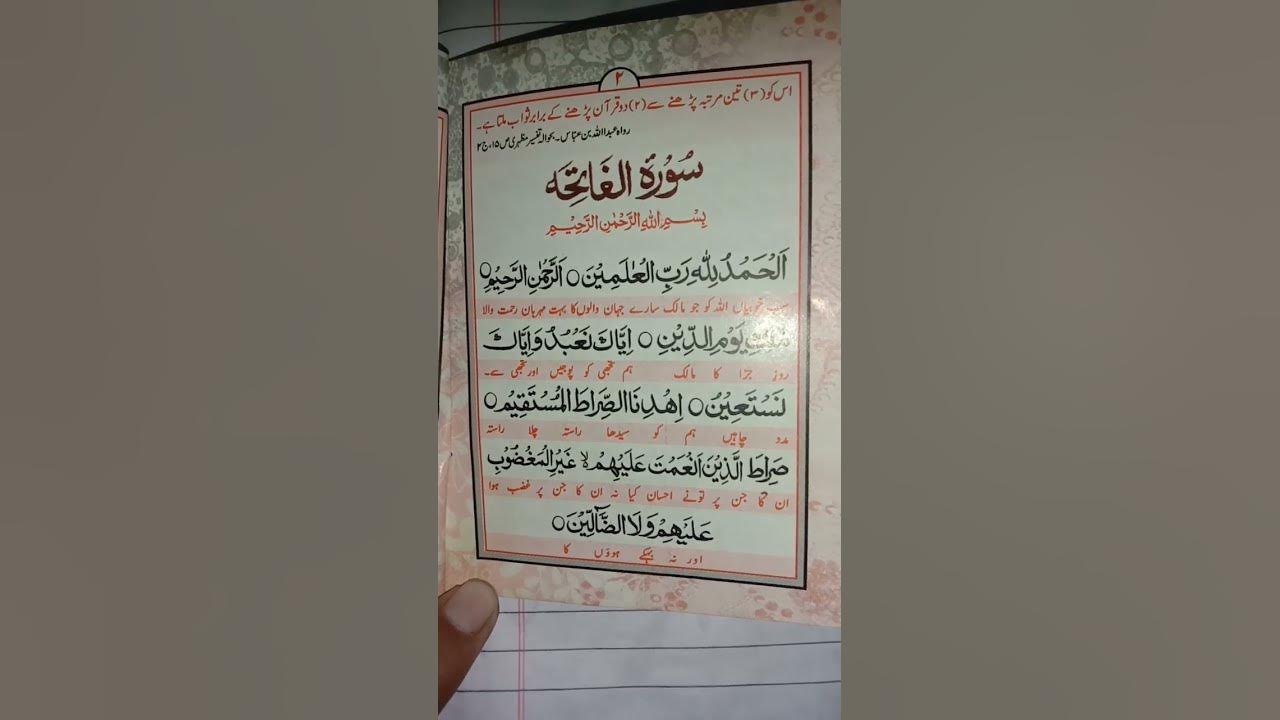 ۲
اس کو (۳) تین مرتبہ پڑھنے سے (۲) دو قرآن پڑھنے کے برابر ثواب ملتا ہے۔
رواہ عبداللہ بن عباس۔ بحوالہ تفسیر مظہری ص ۱۵، ج ۲
سُوْرَۃُ الْفَاتِحَه
بِسْمِ اللهِ الرَّحْمٰنِ الرَّحِيْمِ
اَلْحَمْدُ لِلّٰهِ رَبِّ الْعٰلَمِيْنَ ○ الرَّحْمٰنِ الرَّحِيْمِ ○
سب خوبیاں اللہ کو جو مالک سارے جہان والوں کا بہت مہربان رحمت والا
مٰلِكِ يَوْمِ الدِّيْنِ ○ اِيَّاكَ نَعْبُدُ وَاِيَّاكَ
روزِ جزا کا مالک ہم تجھی کو پوجیں اور تجھی سے۔
نَسْتَعِيْنُ ○ اِهْدِنَا الصِّرَاطَ الْمُسْتَقِيْمَ ○
مدد چاہیں ہم کو سیدھا راستہ چلا راستہ
صِرَاطَ الَّذِيْنَ اَنْعَمْتَ عَلَيْهِمْ لا غَيْرِ الْمَغْضُوْبِ
ان کا جن پر تونے احسان کیا نہ ان کا جن پر غضب ہوا
عَلَيْهِمْ وَلَا الضَّآلِّيْنَ ○
اور نہ بہکے ہوؤں کا